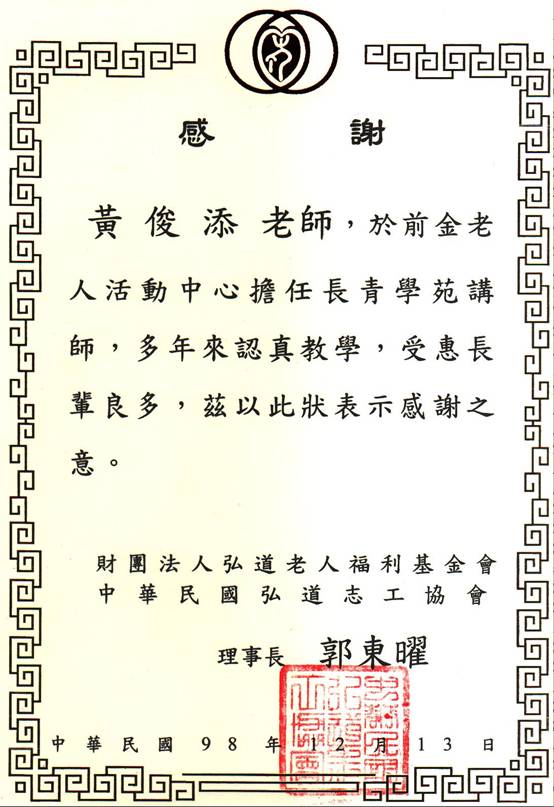 感 謝
黃俊添老師，於前金老
人活動中心擔任長青學苑講
師，多年來認真教學，受惠長
輩良多，茲以此狀表示感謝之
意。
財團法人弘道老人福利基金會
中華民國弘道志工協會
理事長 郭東曜
中華民國98年12月13日